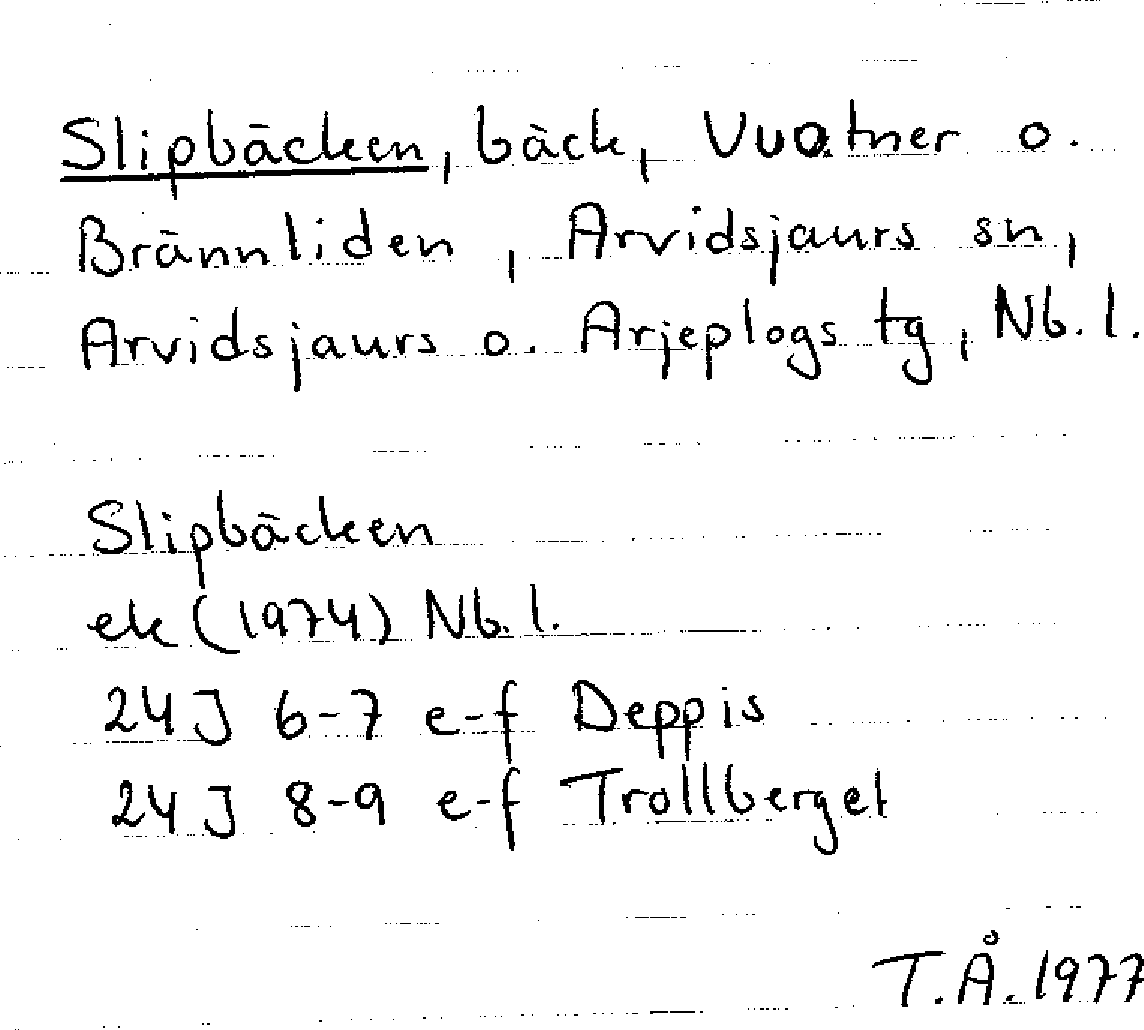 Slipbäcken, bäck, Vuotner o.
Brännliden, Arvidsjaurs sn,
Arvidsjaurs o. Arjeplogs tg, Nb. l.
Slipbäcken
ek (1974) Nb. l.
24J 6-7 e-f Deppis
24J 8-9 e-f Trollberget
T.Å. 1977